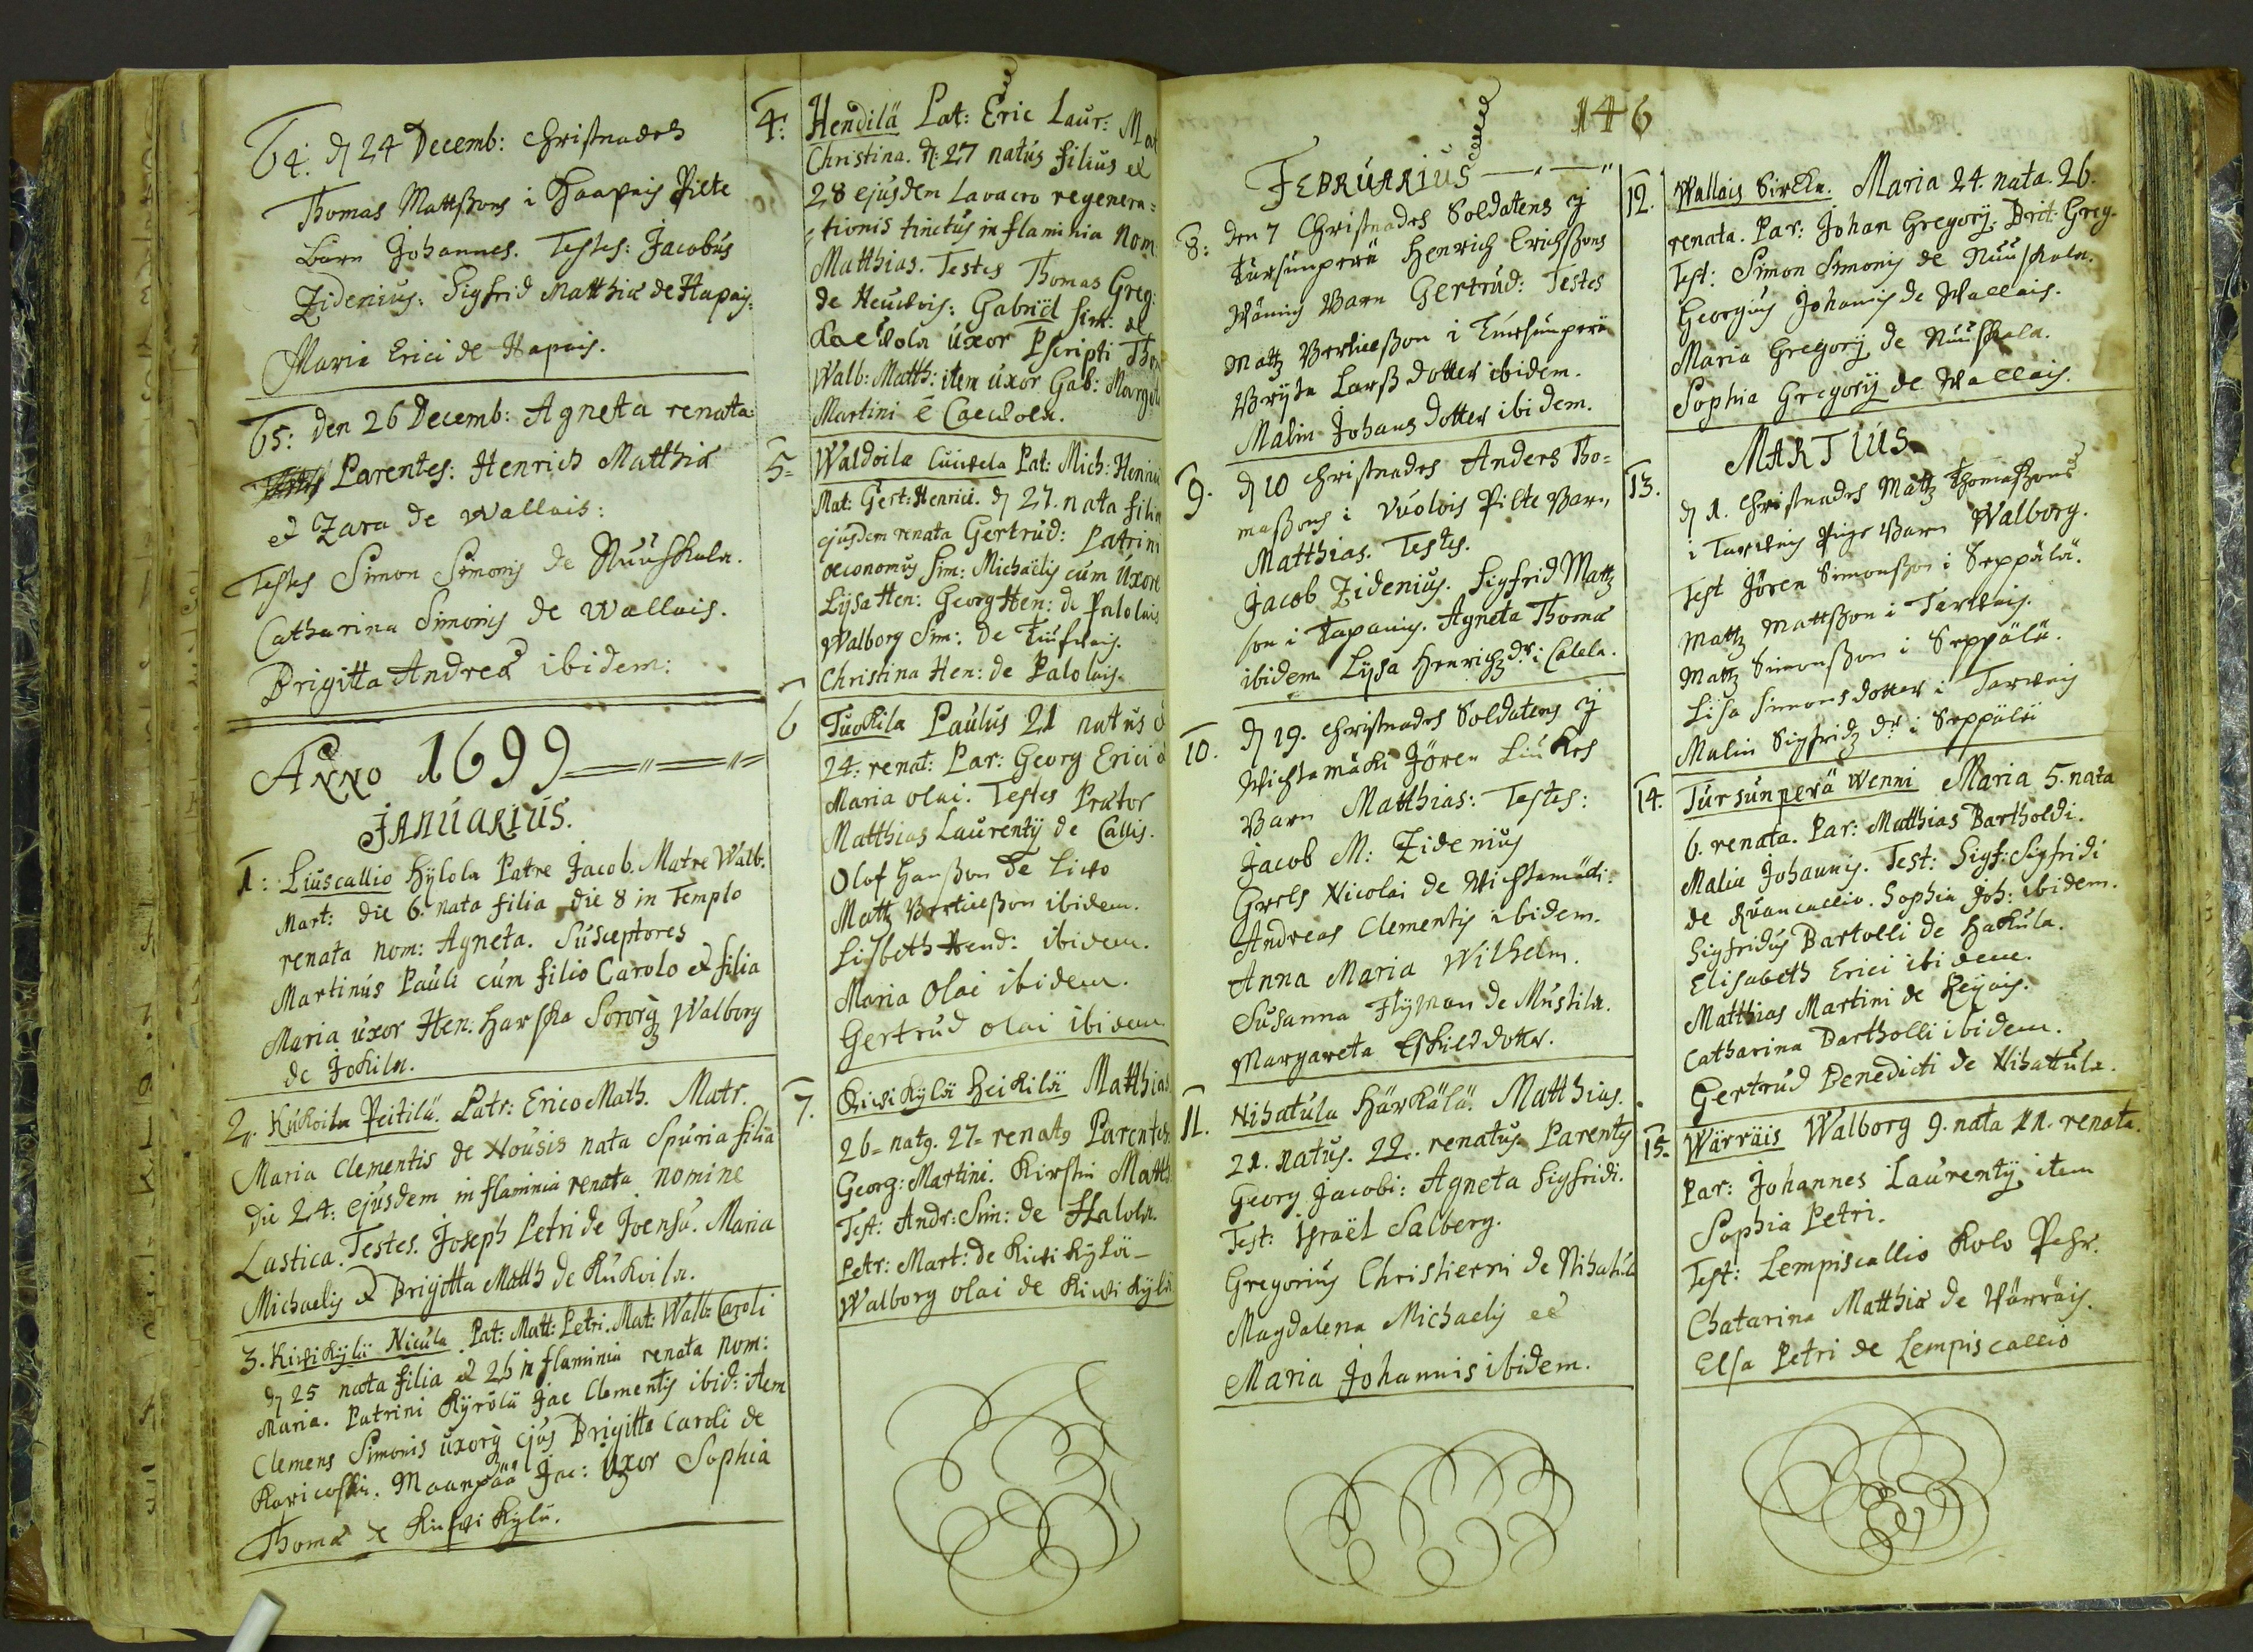 64. d 24 Decemb: Christnades
Thomas Mattssons i Haapais Pilte
barn Johannes. Testes: Jacobus
Zidenius: Sigfrid Matthiæ de Hapais:
Maria Erici de Hapais.
65: den 26 Decemb: Agneta renata:
Parentes: Henrich Matthiæ
et Zara de Wallais:
Testes Simon Simonis de Nuuskala.
Catharina Simonis de Wallais.
Brigitta Andreæ ibidem:
ANNO 1699
JANUARIUS.
1: Liuscallio Hÿlola Patre Jacob. Matre Walb.
Mart: die 6. nata filia die 8 in Templo
renata nom: Agneta. Susceptores
Martinus Pauli cum filio Carolo et filia
Maria uxor Hen. Harska Sororq Walborg
de Jokila.
2. Kukoila Peitilä. Patr: Erico Math. Matr.
Maria Clementis de Nousis nata Spuria filia
die 24: ejusdem in flaminia renata nomine
Lastica. Testes. Joseph Petri de Joensu. Maria
Michaelis et Brigitta Matth de Kukoila.
3. Kiwikÿlä Nicula. Pat: Matt: Petri. Mat: Walb: Caroli
d 25 nata filia et 26 in flaminia renata nom:
Maria. Patrini Kÿrölä Jac Clementis ibid: item
Clemens Simonis uxorq ejus Brigitta Caroli de
Karicoski. Maanpää Jac: Uxor Sophia
Thomæ de Kiwikÿlä.
4: Hendilä Pat: Eric Laur: Mat
Christina. d: 27 natus filius et
28 ejusdem Lavacro regenera=
tionis tinctus in flaminia nom.
Matthias. Testes Thomas Greg:
de Heulois: Gabriel Sim: de
Caewola uxor Pscripti Tho
Walb: Matth: item uxor Gab: Margeta
Martini è Caewola.
5= Waldoila Cuiwela Pat: Mich: Henrici
Mat: Gert: Henrici. d 27. nata filia
ejusdem renata Gertrud: Patrini
oeconomus Sim: Michaëlis cum Uxore
Lÿsa Hen: Georg Hen: de Palolais
Walborg Sim: de
Christina Hen: de Palolais.
6 Tuokila Paulus 21 natus et
24: renat: Par: Georg Erici et
Maria olai. Testes Prætor
Matthias Laurentÿ de Callis.
Olof Hansson de Liwo
Mattz Bertilesson ibidem.
Lisbeth Hend: ibidem.
Maria Olai ibidem.
Gertrud olai ibidem
7. Kiwikÿlä Heikilä Matthias
26= nat9. 27= renat9 Parentes
Georg: Martini. Kirstin Matth
Test: Andr: Sim: de Halola.
Petr: Mart: de Kiwikÿlä
Walborg olai de Kiwikÿlä
146
FEBRUARIUS
8: den 7 Christnades Soldatens ij
Tursunperä Henrich Erichssons
Wänni Barn Gertrud: Testes
Mattz Bertilesson i Tursunperä
Brijta Larssdotter ibidem.
Malin Johansdotter ibidem.
9. d 10 Christnades Anders Tho=
massons i Vuolois Pilte Barn,
Matthias. Testes.
Jacob Zidenius. Sigfrid Mattz
son i Tapanis. Agneta Thomæ
ibidem Lÿsa Henrichz dr i Calela.
10. d 19. Christnades Soldatens ij
Wichtamäki Jören Liukes
Barn Matthias: Testes:
Jacob M: Zidenius
Grels Nicolai de Wichtamäki:
Andreas Clementis ibidem.
Anna Maria Wilhelm.
Susanna Flÿman de Mustila.
Margareta Eskilsdotter.
11. Nihatula Härkälä. Matthias.
21. natus. 22. renatus. Parentes
Georg Jacobi: Agneta Sigfridi.
Test: Israël Salberg.
Gregorius Christierni de Nihatula
Magdalena Michaelis et
Maria Johannis ibidem.
12. Wallais Sirkka. Maria 24. nata. 26.
renata. Par: Johan Gregorÿ. Brit: Greg.
Test: Simon Simonis de Nuuskala.
Georgius Johannis de Wallais.
Maria Gregorÿ de Nuuskala.
Sophia Gregorÿ de Wallais.
MARTIUS
13. d 1. Christnades Mattz Thomassons
i Tarwais Pige Barn Walborg.
Test Jören Simonsson i Seppälä.
Mattz Mattsson i Tarwais.
Mattz Simonsson i Seppälä.
Lisa Simonsdotter i Tarwais
Malin Sigfridz dr i Seppälä
14. Tursunperä Wenni Maria 5. nata
6. renata. Par: Matthias Bartholdi.
Malin Johannis. Test: Sigf: Sigfridi
de Ruancallio. Sophia Joh: ibidem.
Sigfridus Bartolli de Hakula.
Elisabeth Erici ibidem.
Matthias Martini de Reijois.
Catharina Bartholli ibidem.
Gertrud Benedicti de Nihattula.
15= Wärräis Walborg 9. nata 11. renata.
Par: Johannes Laurentÿ item
Sophia Petri.
Test: Lempiscallio Kolo Pehr.
Chatarina Matthiæ de Wärräis.
Elsa Petri de Lempiscallio